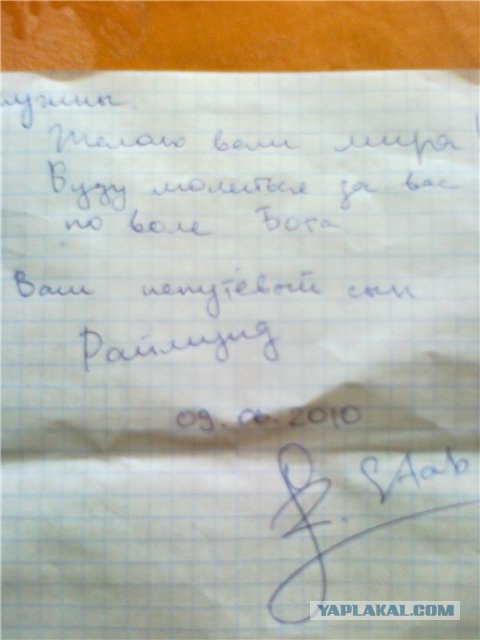 Желаю вам мира!
Буду молиться за вас
по воле Бога
Ваш непутёвый сын
Раймунд
09.06.2010
YAPLAKAL.COM